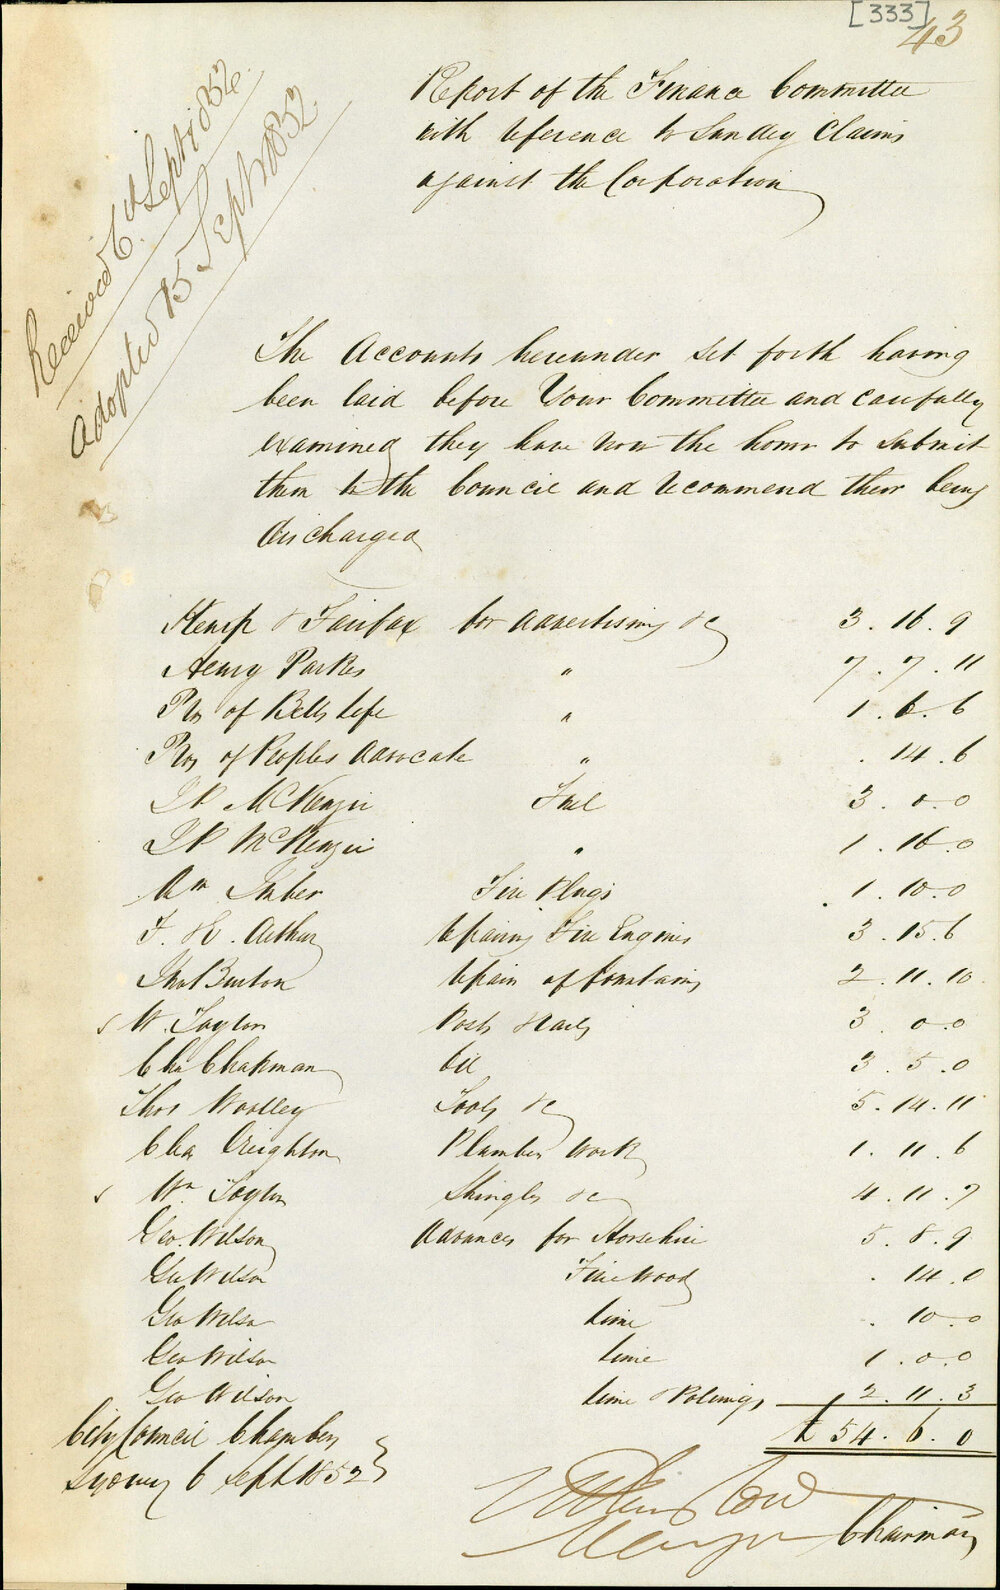 [333]
43
Received 6th Sept 1852
Adopted 15 Sept 1852
Report of the Finance Committee
with reference to Sundry Claims
against the Corporation
The Accounts hereunder set forth having
been laid before Your Committee and carefully
examined they have now the honor to submit
them to the Council and recommend their being
discharged
Kemp & Fairfax for advertising &c 3.16.9
Henry Parkes " 7.7.11
Prs of Bells Life " 1.6.6
Prs of Peoples Advocate " .14.6
McKenzie Fuel 3.0.0
McKenzie " 1.16.0
Wm Inber Fire Plugs 1.10.0
F. H. Arthur repairing Fire Engines 3.15.6
Burton repair of fountains 2.11.10
W. Taylor Posts & Rails 3.0.0
Cha Chapman Oil 3.5.0
Thos Woolley Tools &c 5.14.11
Cha Creighton Plumbers Work 1.11.6
Wm Taylor Shingles &c 4.11.7
Geo. Wilson Advances for Horsehire 5.8.9
Geo Wilson Fire Wood .14.0
Geo Wilson Lime .10.0
Geo Wilson Lime 1.0.0
Geo Wilson Lime & Palings 2.11.3
£54.6.0
City Council Chambers
Sydney 6 Sept 1852
Mayor Chairman